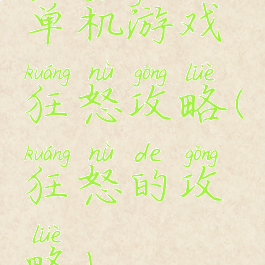 单机游戏
kuáng nù gōng lüè
狂怒攻略(
kuáng nù de gōng
狂怒的攻
lüè
略)